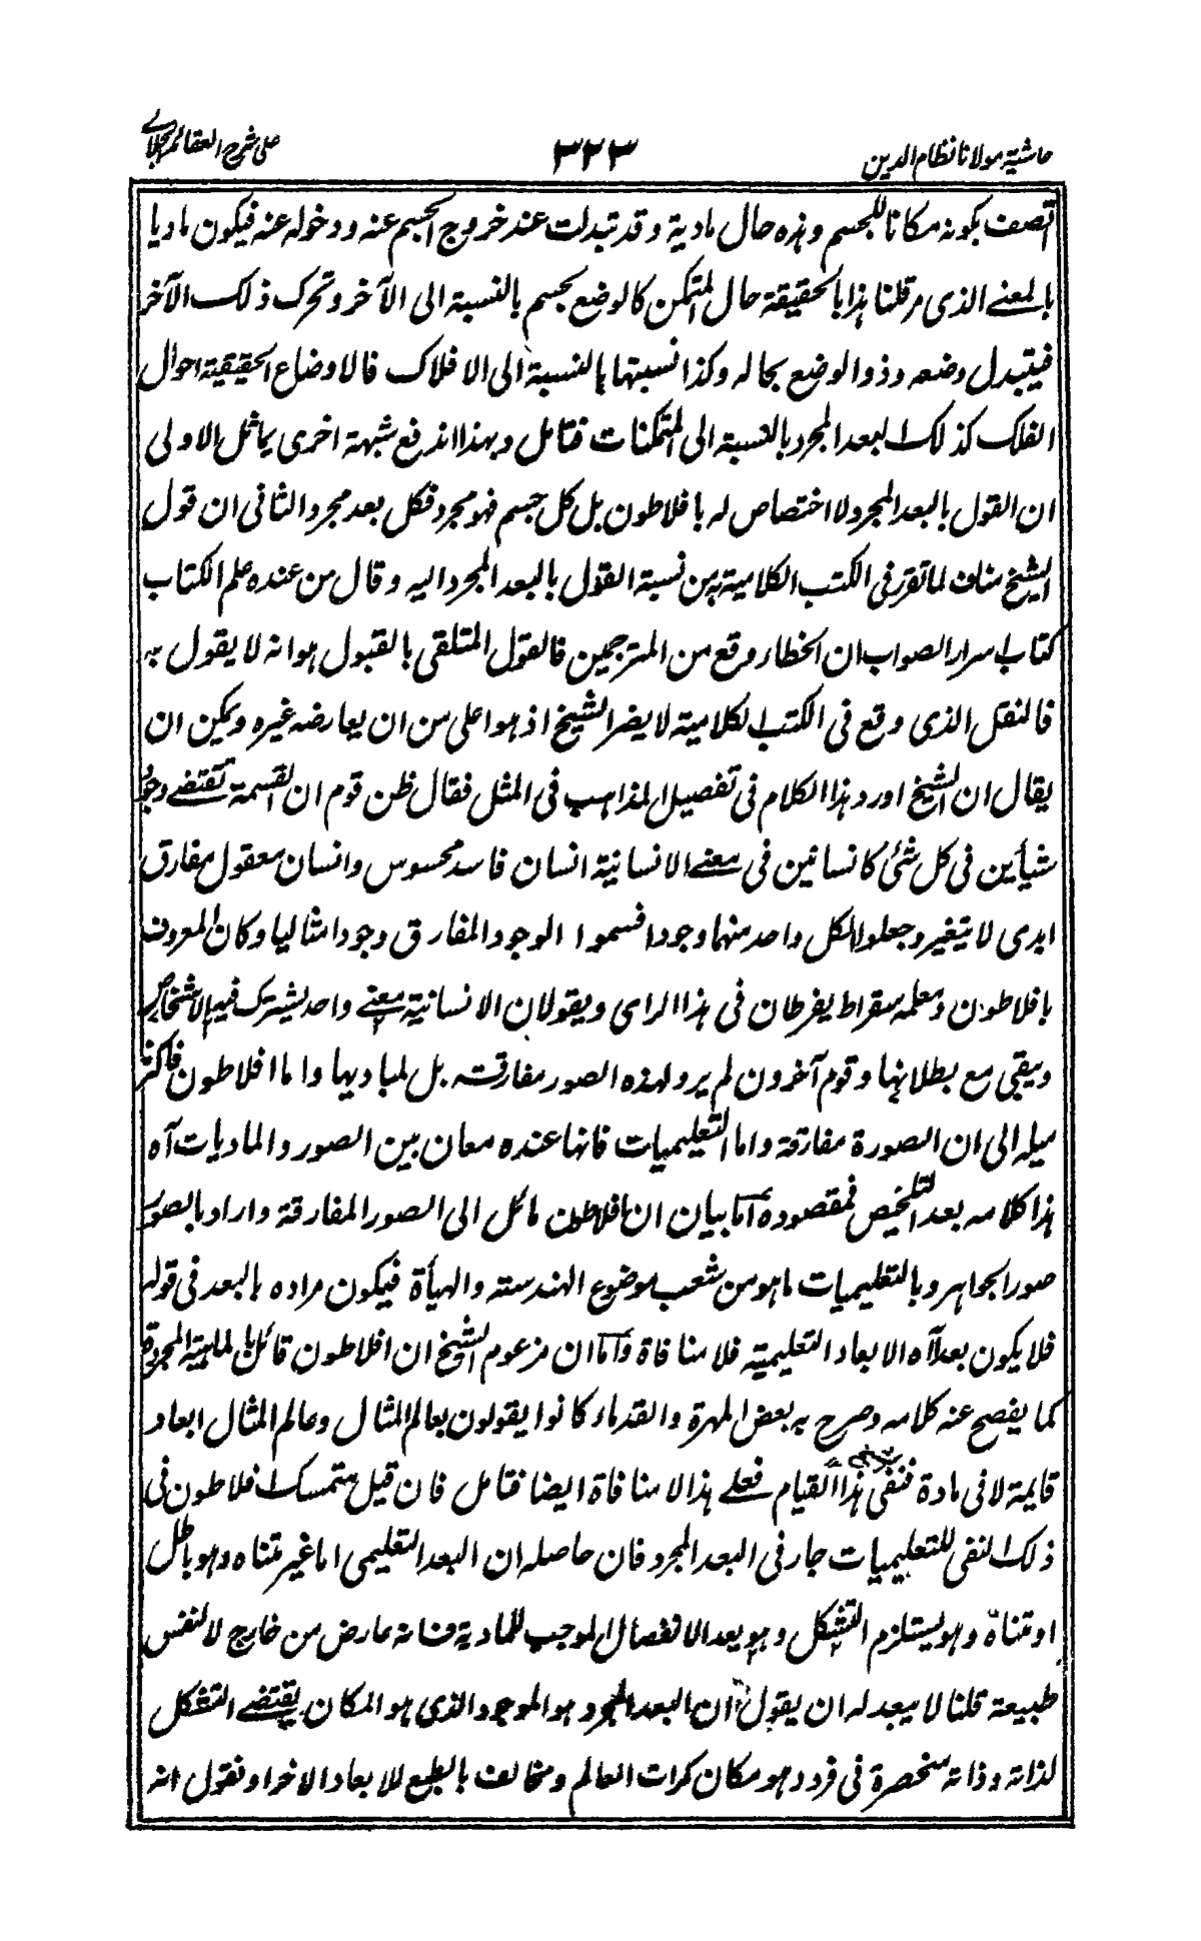 حاشية مولانا نظام الدين
٣٢٣
على شرح العقائد الجلالي
اتصف بكونه مكانا للجسم وهذه حال مادية وقد تبدلت عند خروج الجسم عنه ودخوله عنه فيكون ماديا
بالمعنى الذى مر قلنا هذا بالحقيقة حال المتمكن كالوضع لجسم بالنسبة الى الآخر وتحرك ذلك الآخر
فيتبدل وضعه وذو الوضع بحاله وكذا نسبتها بالنسبة الى الافلاك فالاوضاع الحقيقية احوال
الفلك كذلك البعد المجرد بالنسبة الى المتمكنات فتامل وبهذا اندفع شبهة اخرى يماثل الاولى
ان القول بالبعد المجرد لا اختصاص له بافلاطون بل كل جسم فهو مجرد فكل بعد مجرد الثانى ان قول
الشيخ مناف لما تقرر فى الكتب الكلامية من نسبة القول بالبعد المجرد اليه وقال من عنده علم الكتاب
كتاب اسرار الصواب ان الخطاء وقع من المترجمين فالقول المتلقى بالقبول هو انه لا يقول به
فالنقل الذى وقع فى الكتب الكلامية لا يضر الشيخ اذ هو اعلى من ان يعارضه غيره ويمكن ان
يقال ان الشيخ اورد هذا الكلام فى تفصيل المذاهب فى المثل فقال ظن قوم ان القسمة تقتضى وجود
شيأين فى كل شئ كانسانين فى معنى الانسانية انسان فاسد محسوس وانسان معقول مفارق
ابدى لا يتغير وجعلوا لكل واحد منهما وجودا فسموا الوجود المفارق وجودا مثاليا وكان المعروف
بافلاطون ومعلمه سقراط يفرطان فى هذا الراى ويقولان الانسانية معنى واحد يشترك فيه الاشخاص
ويبقى مع بطلانها وقوم آخرون لم يروا لهذه الصور مفارقة بل لمباديها واما افلاطون فاكثر
ميله الى ان الصورة مفارقة واما التعليميات فانها عنده معان بين الصور والماديات آه
هذا كلامه بعد التلخيص فمقصوده اما بيان ان افلاطون مائل الى الصور المفارقة واراد بالصور
صور الجواهر وبالتعليميات ما هو من شعب موضوع الهندسة والهيأة فيكون مراده بالبعد فى قوله
فلا يكون بعدا آه الابعاد التعليمية فلا منافاة واما ان مزعوم الشيخ ان افلاطون قائل بالماهية المجردة
كما يفصح عنه كلامه وصرح به بعض المهرة والقدماء كانوا يقولون بعالم المثال وعالم المثال ابعاد
قايمة لا فى مادة فنفى هذا القيام فعلى هذا لا منافاة ايضا فتامل فان قيل متمسك افلاطون فى
ذلك النفى للتعليميات جار فى البعد المجرد فان حاصله ان البعد التعليمى اما غير متناه وهو باطل
او متناه وهو يستلزم التشكل وهو بعد الانفصال الموجب للمادية فانه عارض من خارج لا لنفس
طبيعة قلنا لا يبعد له ان يقول ان البعد المجرد هو الموجود الذى هو المكان يقتضى التشكل
لذاته وذاته منحصرة فى فرد وهو مكان كرات العالم ومخالف بالطبع للابعاد الاخر او نقول انه